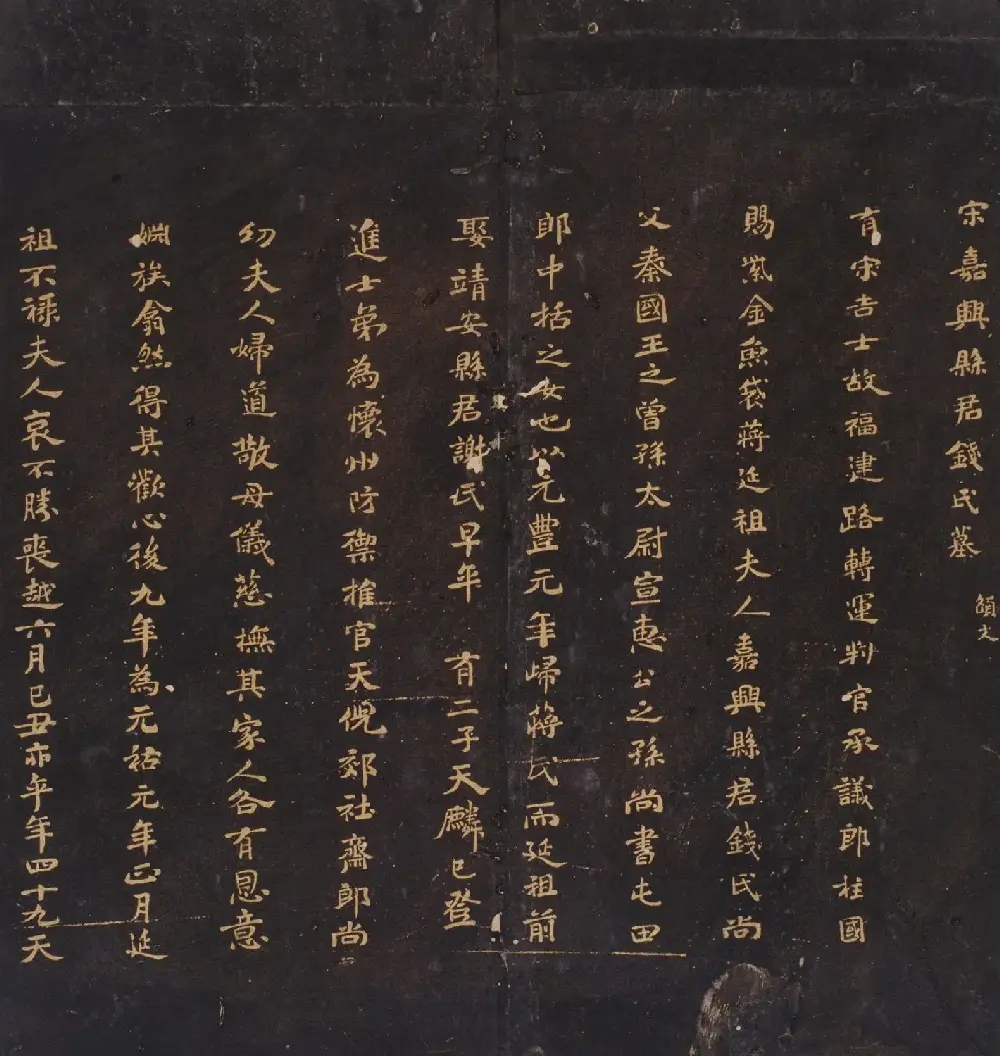 宋嘉興縣君錢氏墓
額文
有宋吉士故福建路轉運判官承議郎柱國
賜紫金魚袋蔣延祖夫人嘉興縣君錢氏尚
父秦國王之曾孫太尉宣惠公之孫尚書屯田
郎中括之女也以元豐元年歸蔣氏而延祖前
娶靖安縣君謝氏早年有二子天麟已登
進士第為懷州防禦推官天倪郊社齋郎尚
幼夫人婦道敬母儀慈撫其家人各有恩意
姻族翕然得其歡心後九年為元祐元年正月延
祖不祿夫人哀不勝喪越六月己丑亦卒年四十九天